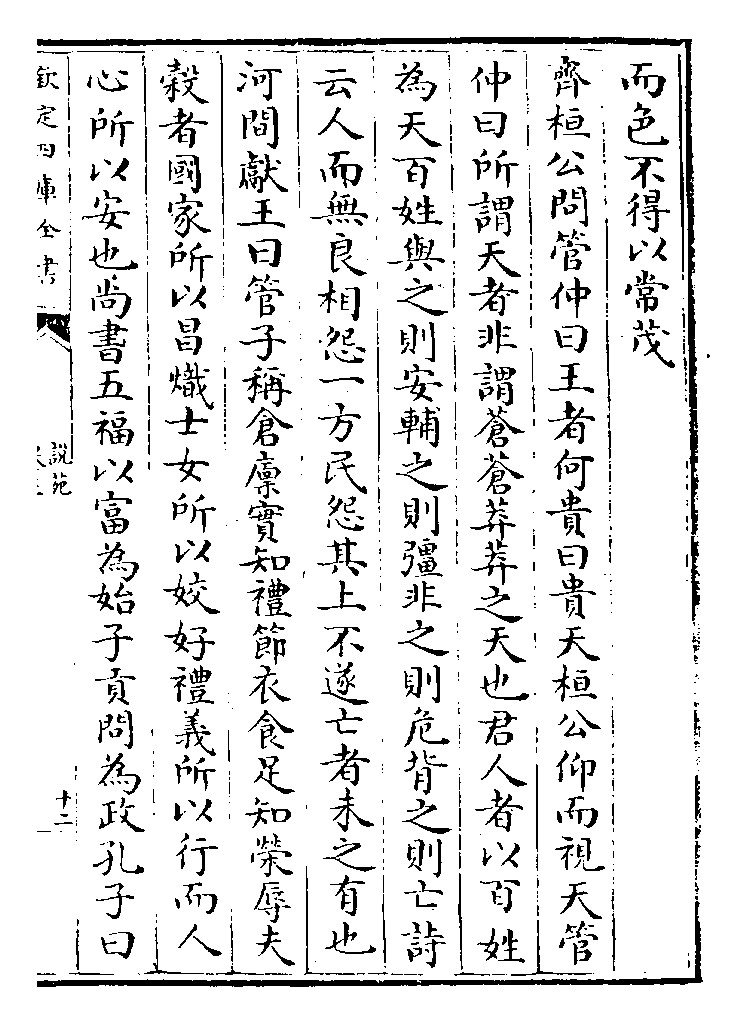 而色不得以常茂
齊桓公問管仲曰王者何貴曰貴天桓公仰而視天管
仲曰所謂天者非謂蒼蒼莽莽之天也君人者以百姓
為天百姓與之則安輔之則彊非之則危背之則亡詩
云人而無良相怨一方民怨其上不遂亡者未之有也
河間獻王曰管子稱倉廩實知禮節衣食足知榮辱夫
穀者國家所以昌熾士女所以姣好禮義所以行而人
心所以安也尚書五福以富為始子貢問為政孔子曰
欽定四庫全書
說苑
十二